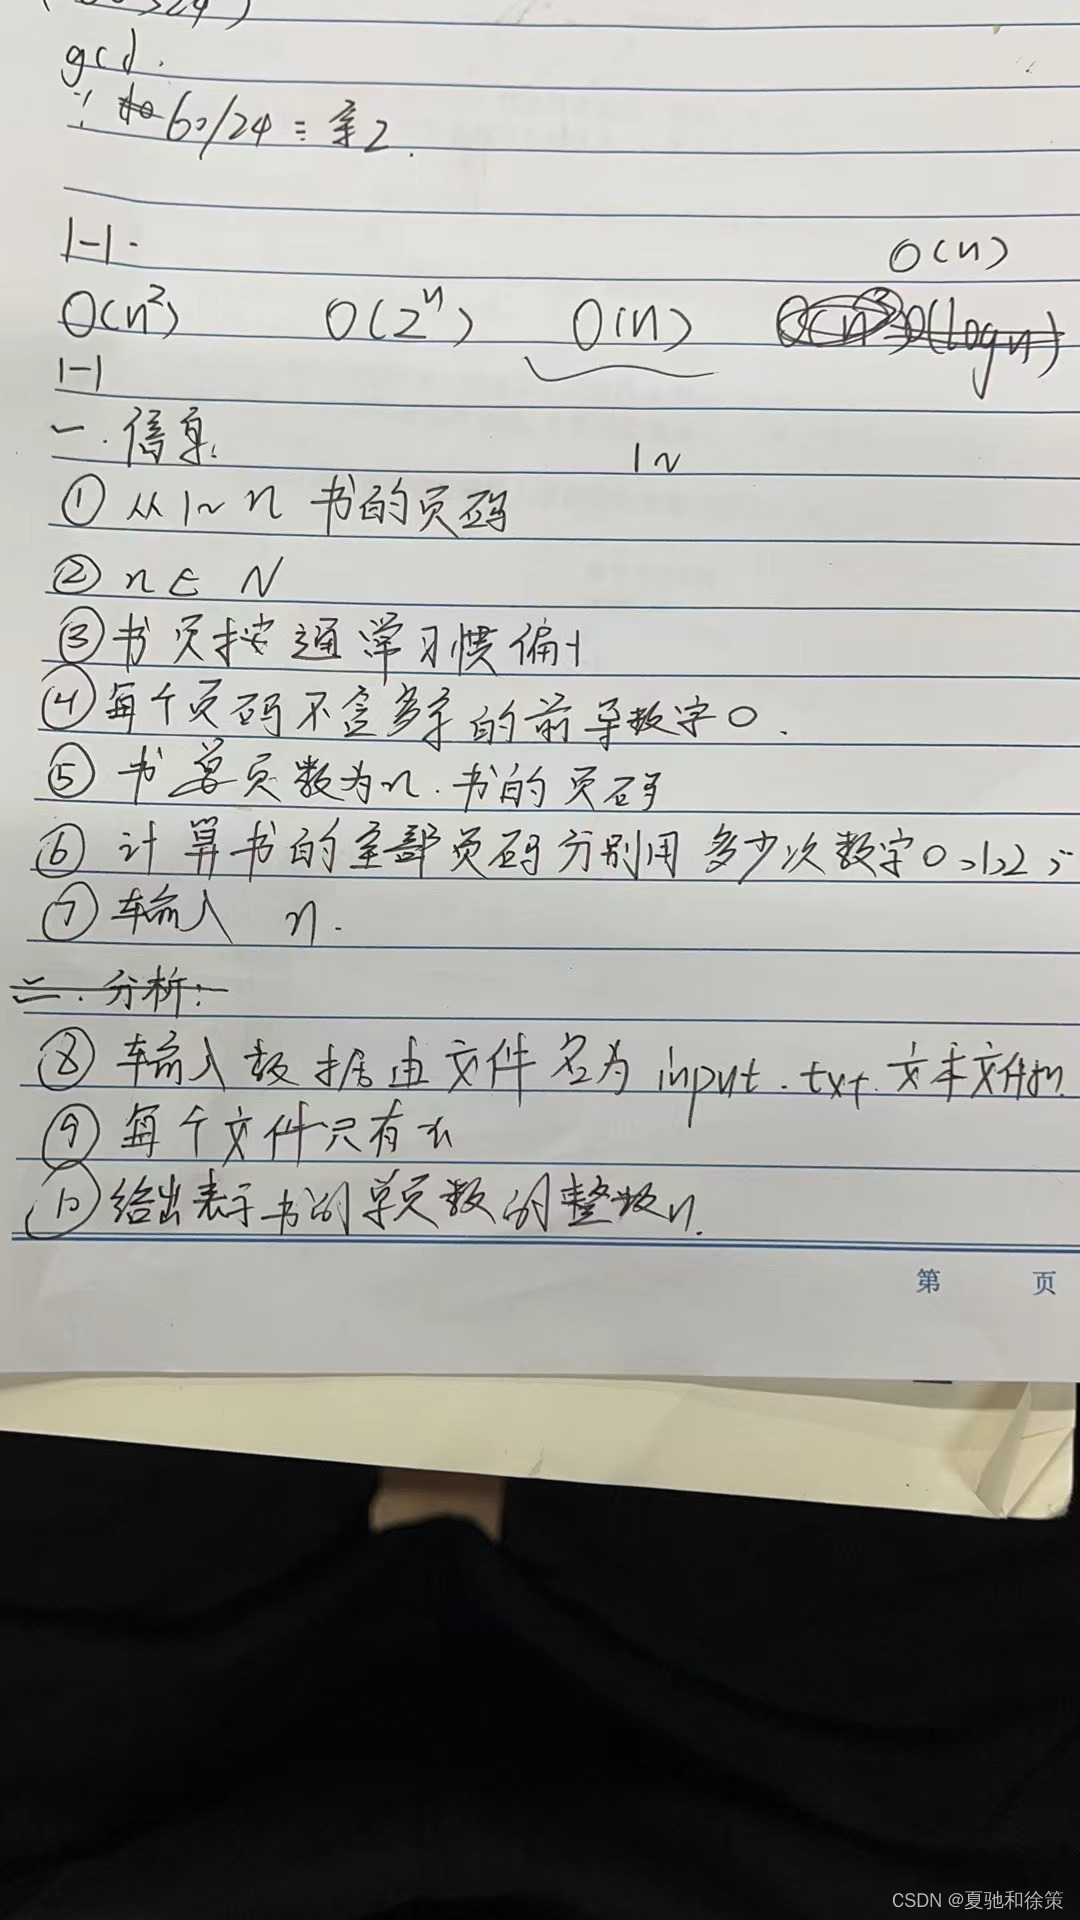 gcd.
60/24 = 余2.
1-1.
O(n)
O(n²) O(2ⁿ) O(n) O(logn)
1-1
一.信息:
1~
① 从1~n 书的页码
② n∈N
③ 书页按通常习惯偏
④ 每个页码不含多余的前导数字0.
⑤ 书总页数为n.书的页码
⑥ 计算书的全部页码分别用多少次数字0,1,2,
⑦ 输入 n.
二.分析:
⑧ 输入数据由文件名为input.txt.文本文件
⑨ 每个文件只有
⑩ 给出表示书的总页数的整数n.
第 页
CSDN @夏驰和徐策